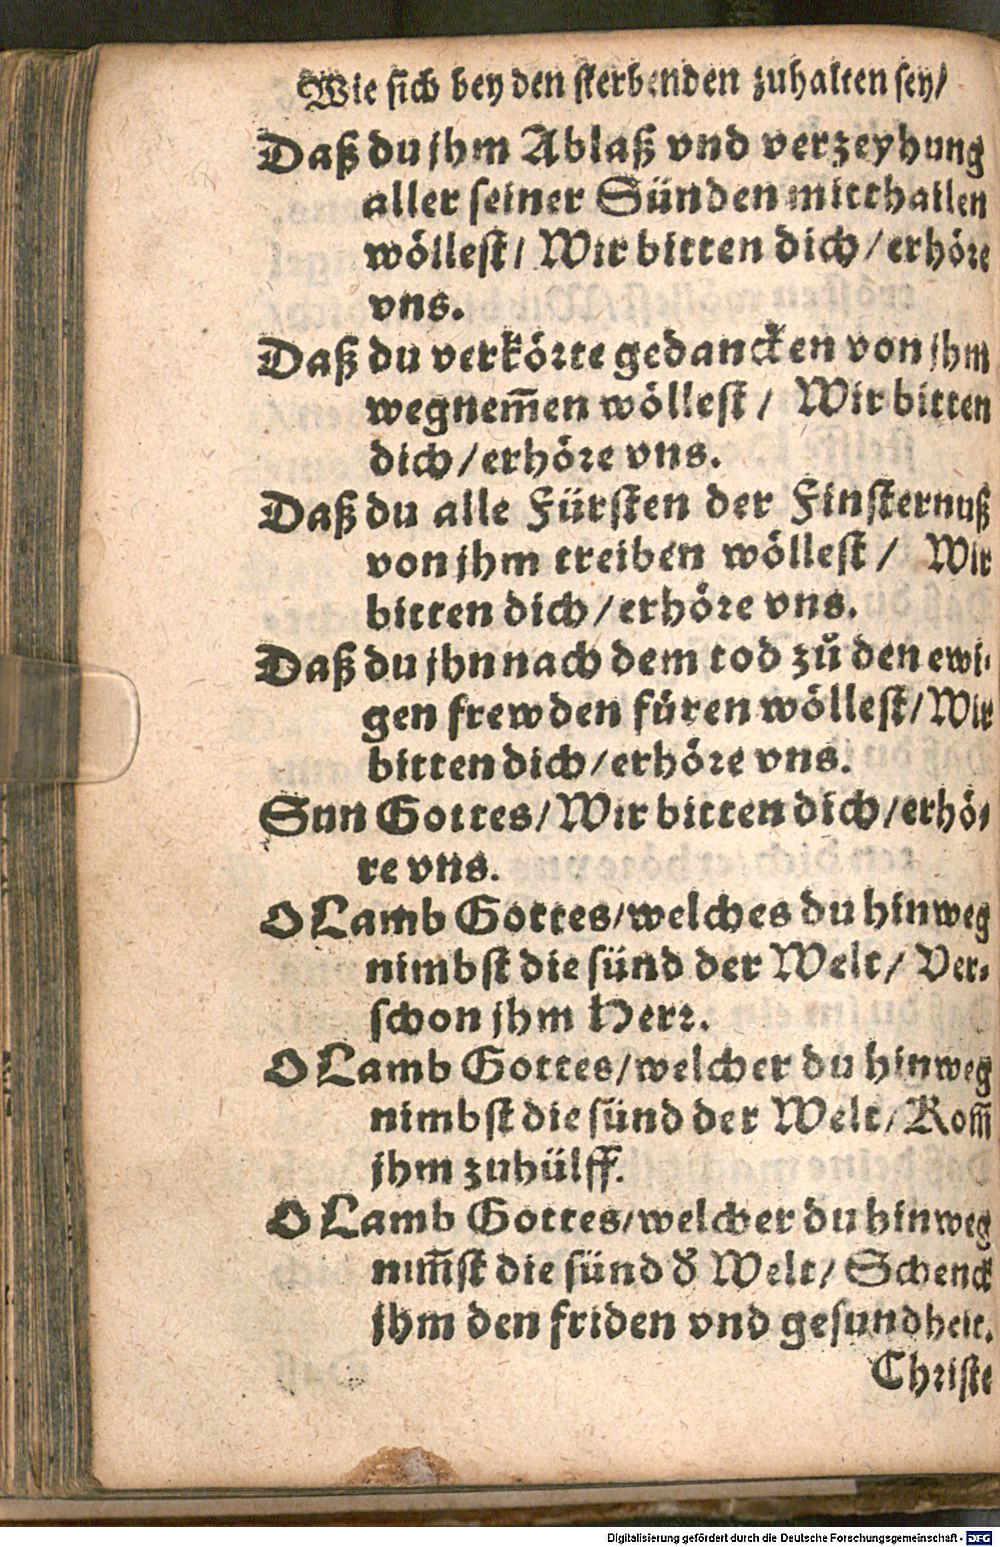 Wie sich bey den sterbenden zuhalten sey/
Daß du jhm Ablaß vnd verzeyhung
aller seiner Sünden mitthailen
wöllest/ Wir bitten dich/erhöre
vns.
Daß du verkörte gedancken von jhm
wegnem̃en wöllest / Wir bitten
dich/erhöre vns.
Daß du alle Fürsten der Finsternuß
von jhm treiben wöllest / Wir
bitten dich/erhöre vns.
Daß du jhn nach dem tod zů den ewi⸗
gen frewden füren wöllest/Wir
bitten dich/erhöre vns.
Sun Gottes/Wir bitten dich/erhö⸗
re vns.
O Lamb Gottes/welches du hinweg
nimbst die sünd der Welt/ Ver⸗
schon jhm Herr.
O Lamb Gottes/welcher du hinweg
nimbst die sünd der Welt/Kom̃
jhm zuhülff.
O Lamb Gottes/welcher du hinweg
nim̃st die sünd d̕ Welt/ Schenck
jhm den friden vnd gesundheit.
Christe
Digitalisierung gefördert durch die Deutsche Forschungsgemeinschaft - DFG